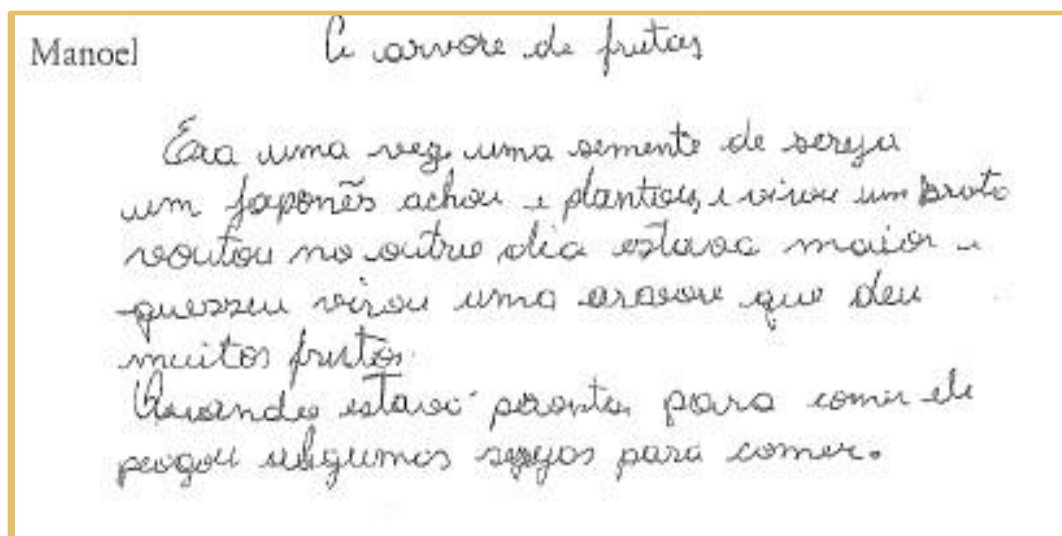 Manoel
A arvore de frutas
Era uma vez uma semente de sereja
um japonẽs achou e plantou, e virou um broto
voutou no outro dia estava maior e
quesseu virou uma aravore que deu
muitos frutos.
Quando estava pronta para comer ele
pegou algumas serejas para comer.